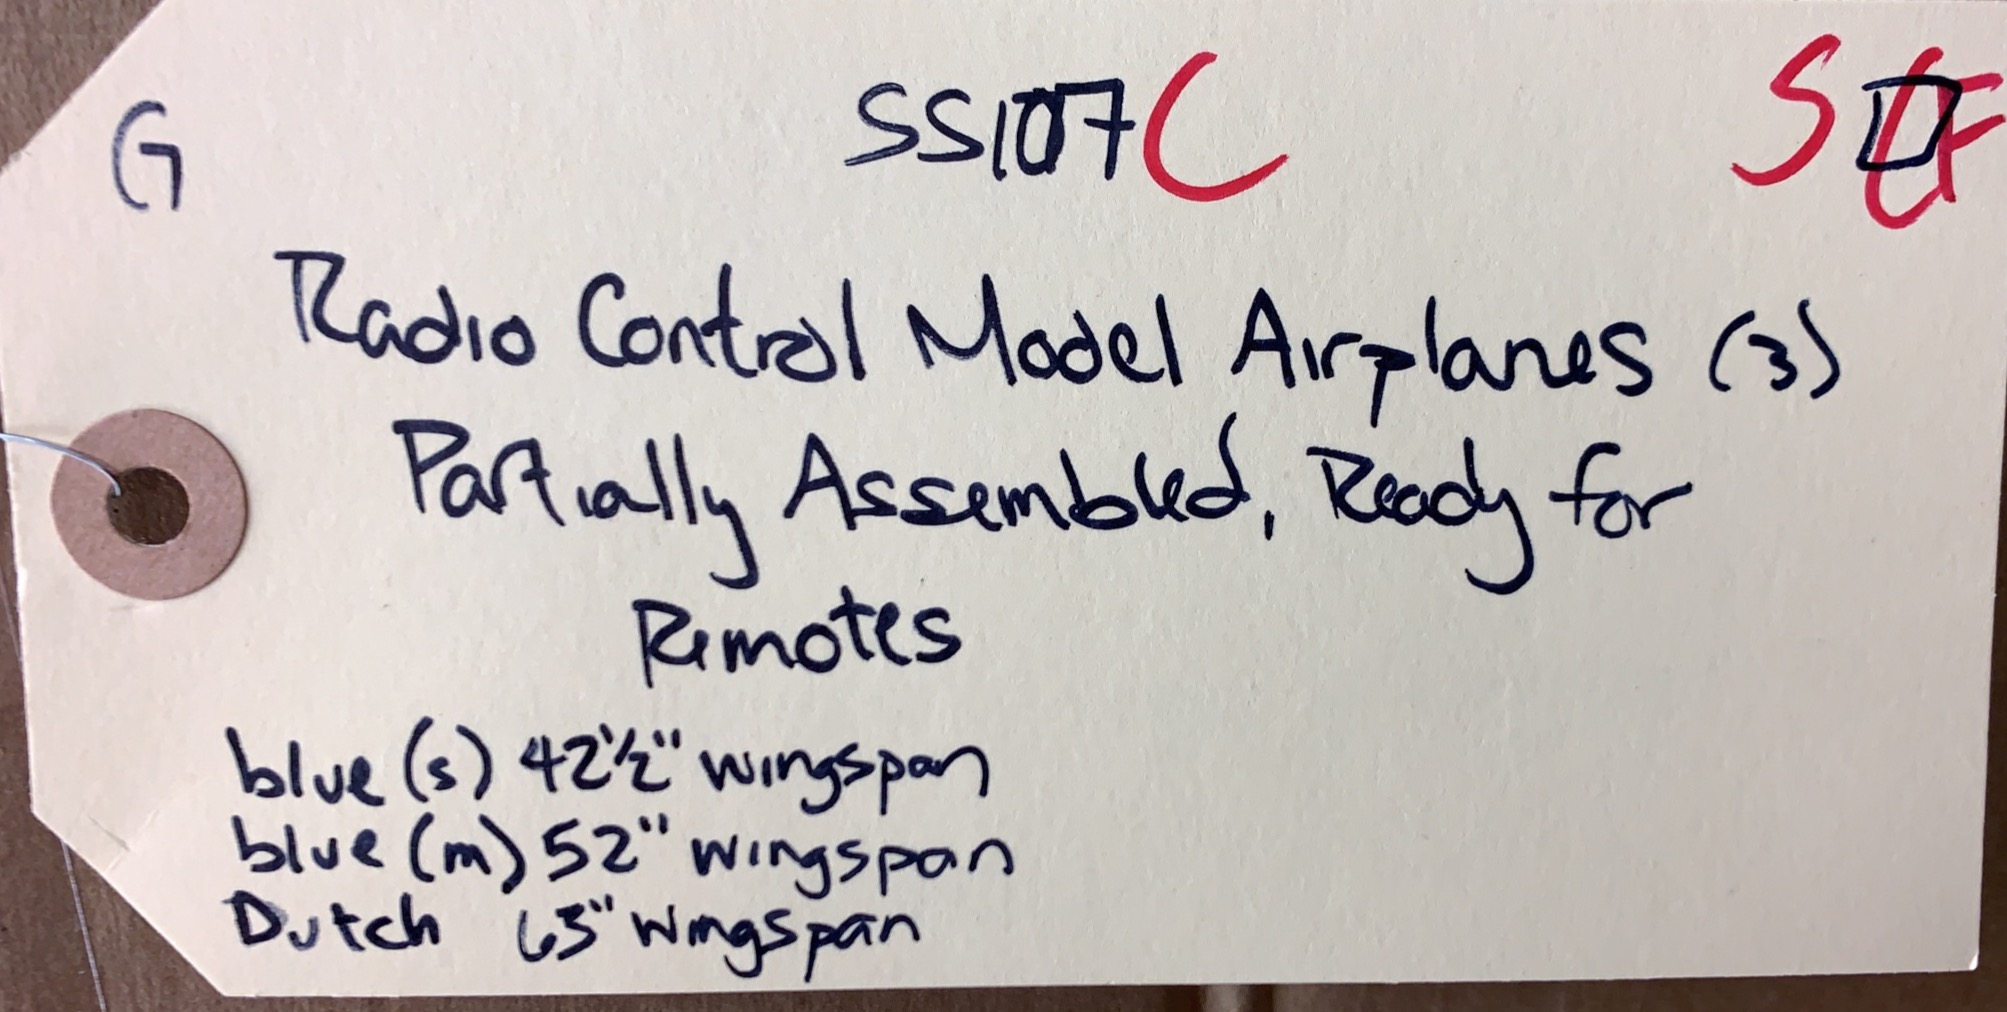 G SS107C S
Radio Control Model Airplanes (3)
Partially Assembled, Ready for
Remotes
blue (s) 42½" wingspan
blue (m) 52" wingspan
Dutch 63" wingspan